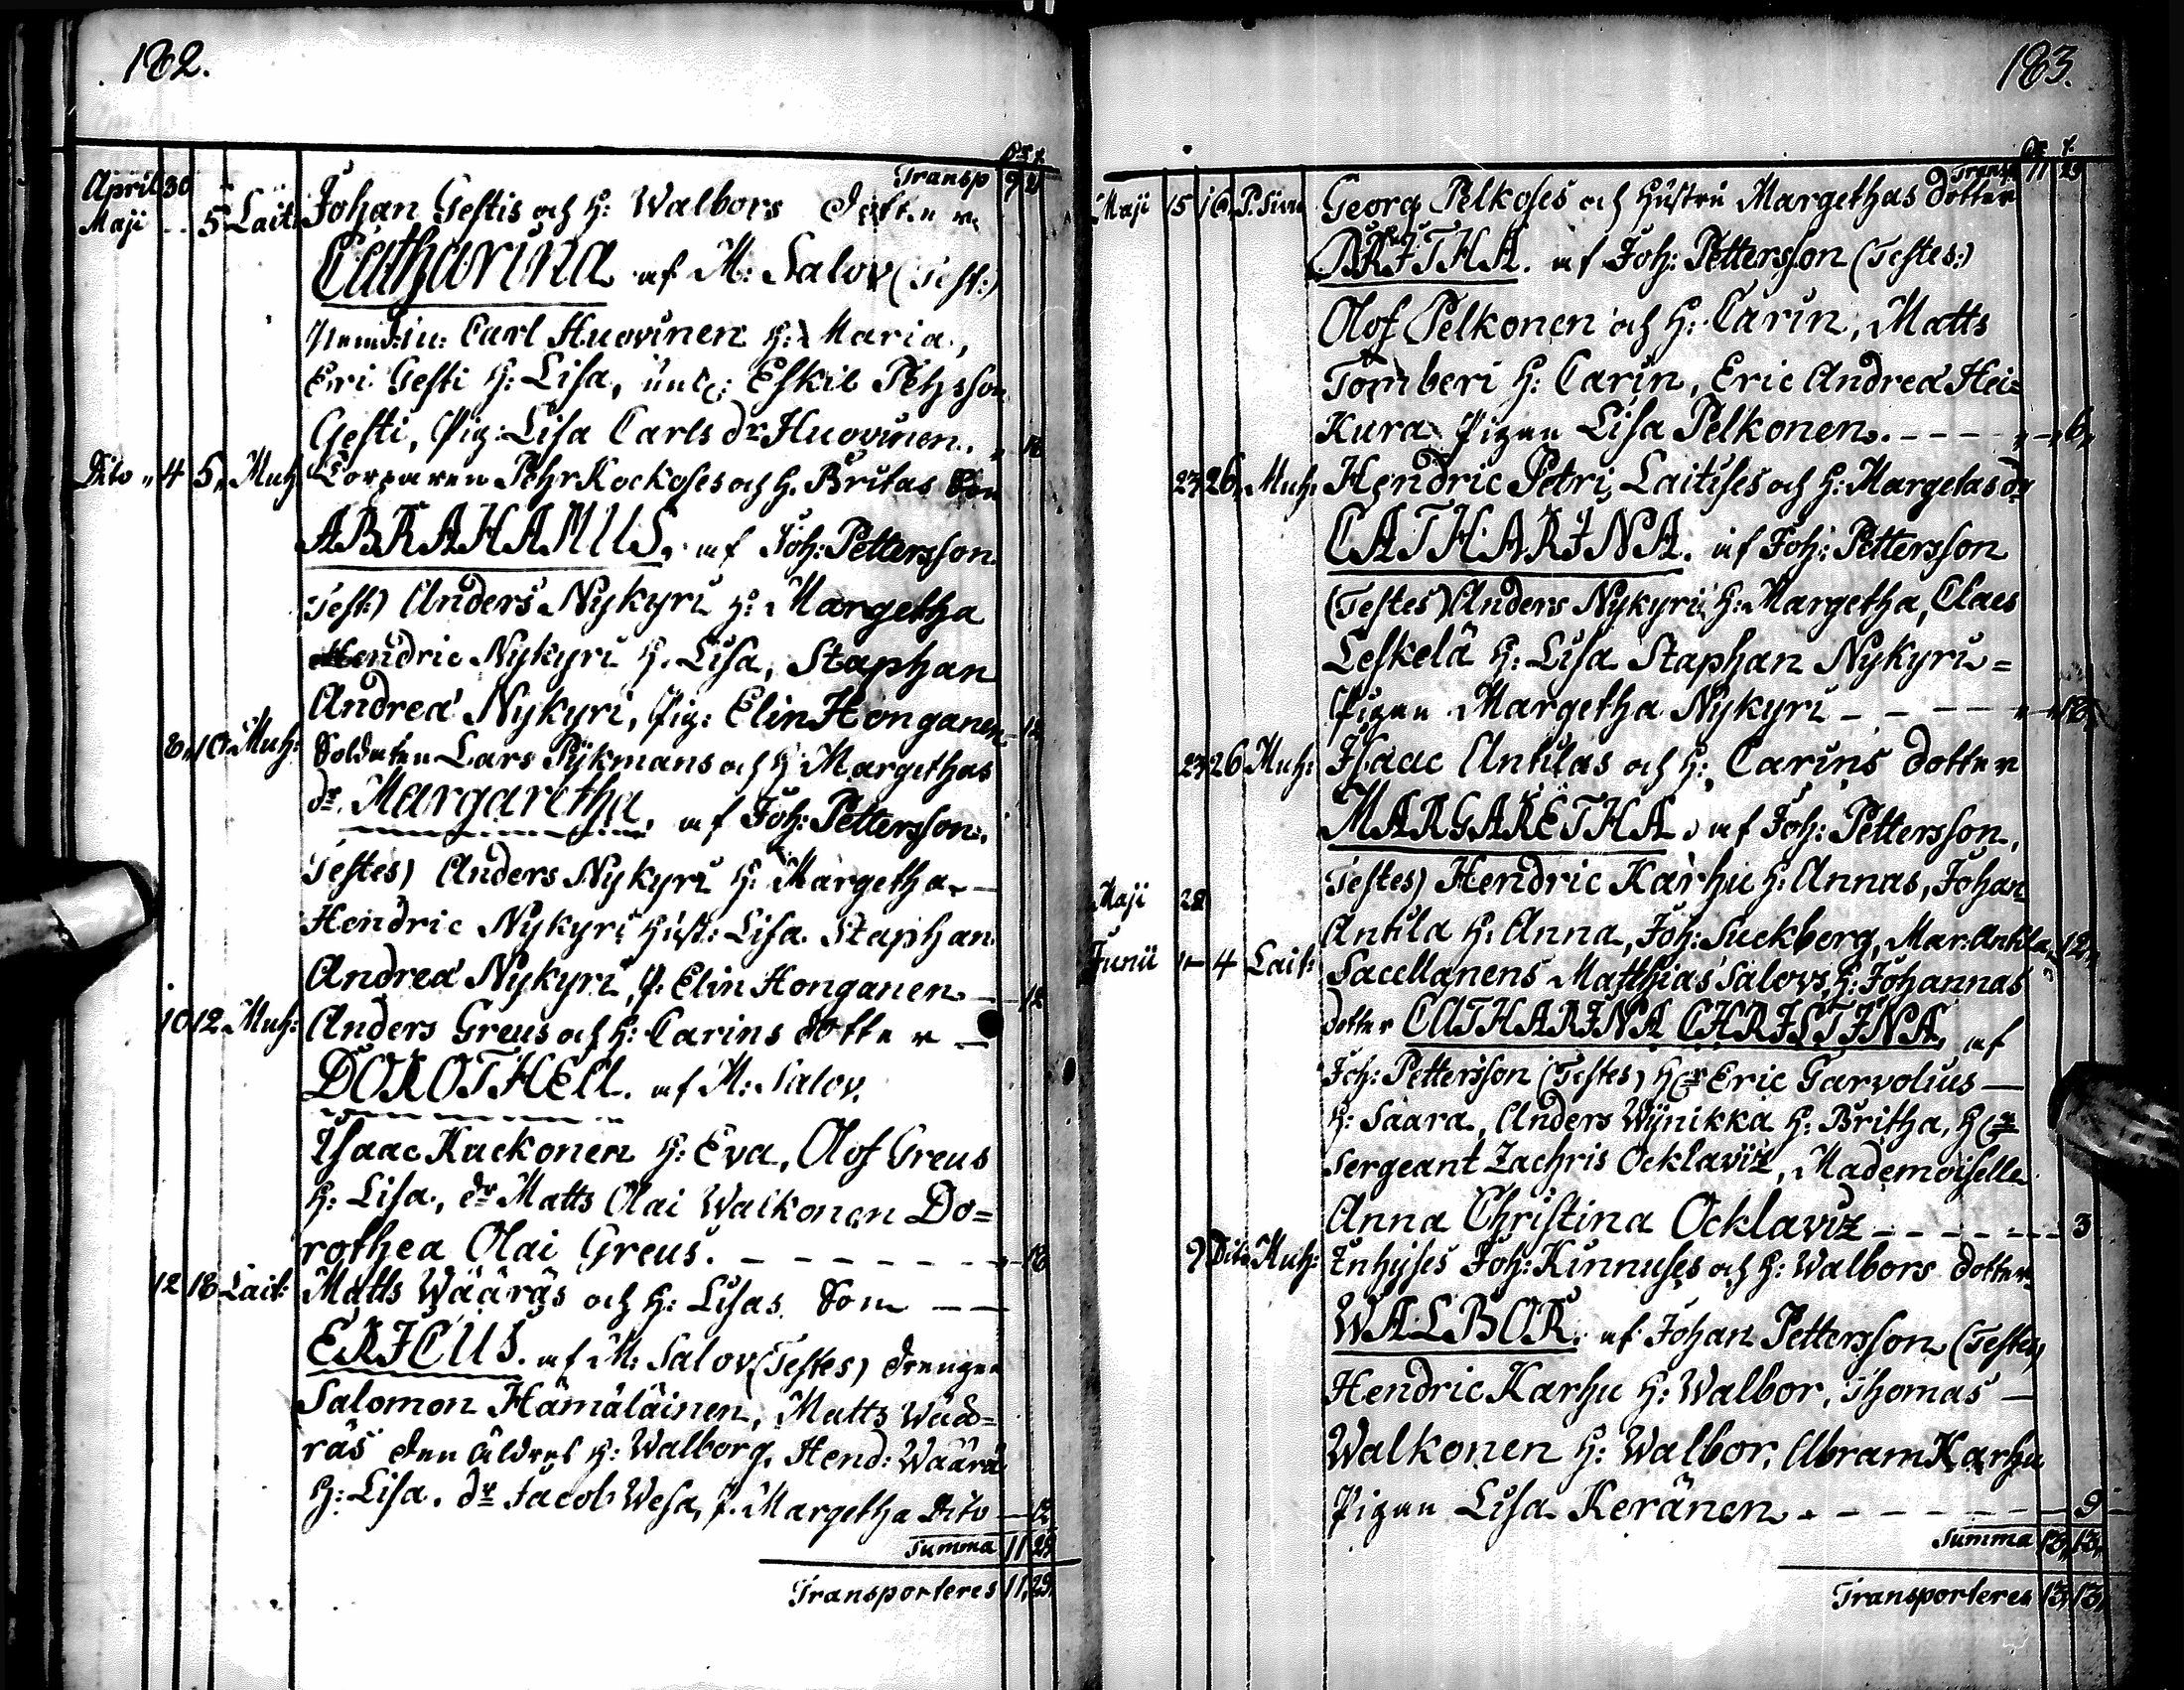 182.
Transp 9 2
April 30
Maji 5 Lait: Johan Gestis och H: Walbors dotter
Catharina af M: Salov (Test:)
Carl Huovinen H: Maria,
Eri Gesti H: Lisa, Eskil Pehrsson
Gesti, Pig: Lisa Carls dr Huovinen.
Dito 4 5 Muh: Corparen Pehr Kockoses och H. Britas Son
ABRAHAMUS. af Joh: Pettersson
Test:) Anders Nykyri H: Margetha
Hendric Nykyri H. Lisa, Staphan
Andreæ Nykyri, Pig: Elin Honganen 12
8 10 Muh: Soldaten Lars Pijkmans och H Margethas
dr Margaretha. af Joh: Pettersson.
Testes) Anders Nykyri H: Margetha
Hendric Nykyri Hust: Lisa Staphan
Andreæ Nykyri, P. Elin Honganen 12
10 12 Muh: Anders Greus och H: Carins dotter
DOROTHEA. af M: Salov.
Isaac Kuckonen H: Eva, Olof Greus
H: Lisa, dr Matts Olai Walkonen Do=
rothea Olai Greus. 18
12 18 Lait: Matts Wääräs och H: Lisas Son
ERICUS. af M: Salov (Testes) drengen
Salomon Hämäläinen, Matts Wää=
räs den äldres H: Walborg, Hend: Wäärä
H: Lisa. dr Jacob Wesa, P. Margetha Dito 12
Summa 11 29
Transporteres 11 29
183.
Transp 11 29
Maji 15 16 Georg Pelkoses och Hustru Margethas dotter
BRITHA. af Joh: Pettersson (Testes:)
Olof Pelkonen och H: Carin, Matts
Tomberi H: Carin, Eric Andreæ Hei=
Kura Pigan Lisa Pelkonen. 6
23 26 Muh: Hendric Petri Laitises och H: Margetas dr
CATHARINA. af Joh: Pettersson
(Testes) Anders Nykyri H: Margetha, Claes
Leskelä H: Lisa Staphan Nykyri=
Pigan Margetha Nykyri
23 26 Muh: Isaac Antilas och H: Carins dotter
MARGARETHA. af Joh: Pettersson,
Testes) Hendric Karhu H: Annas, Johan
Maji 28
Antila H: Anna, Joh: Suckberg, Mar: Antila 12
Junii 1 4 Lait: Sacellanens Matthias Salovs, H: Johannas
dotter CATHARINA CHRISTINA, af
Joh: Pettersson (Testes) Hr Eric Garvolius
H: Saara, Anders Wÿnikka H: Britha, Hr
Sergeant Zachris Ocklaviz, Mademoiselle
Anna Christina Ocklaviz 3
2 Dito Muh: Inhyses Joh: Kinnuses och H: Walbors dotter
WALBOR. af Johan Pettersson (Testes)
Hendric Karhu H: Walbor, Thomas
Walkonen H: Walbor, Abram Karhu
Pigan Lisa Keränen 9
Summa 13 13
Transporteres 13 13